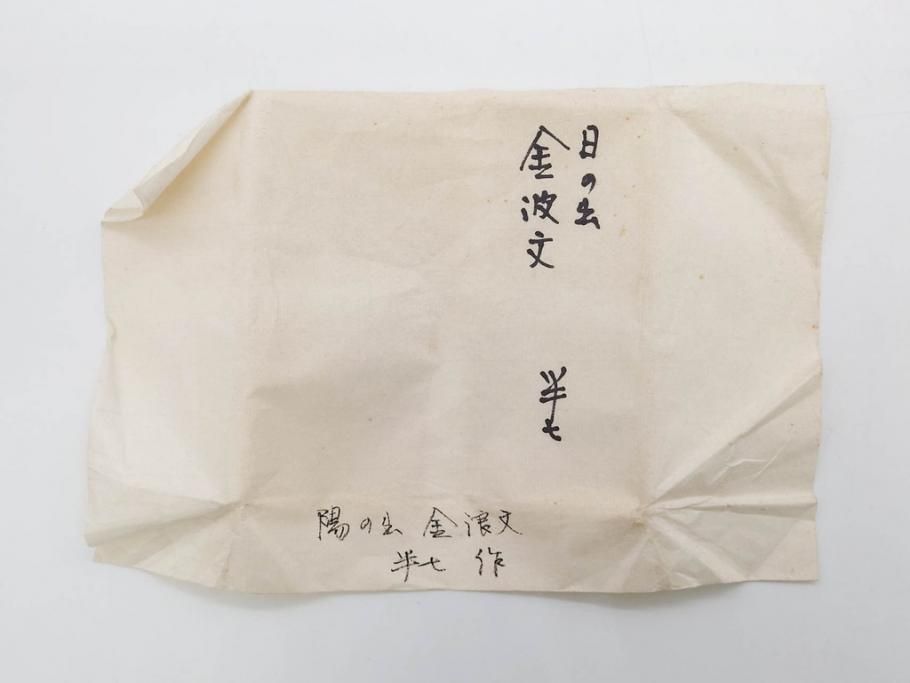 日の出
金波文
半七
陽の出 金濤文
半七 作